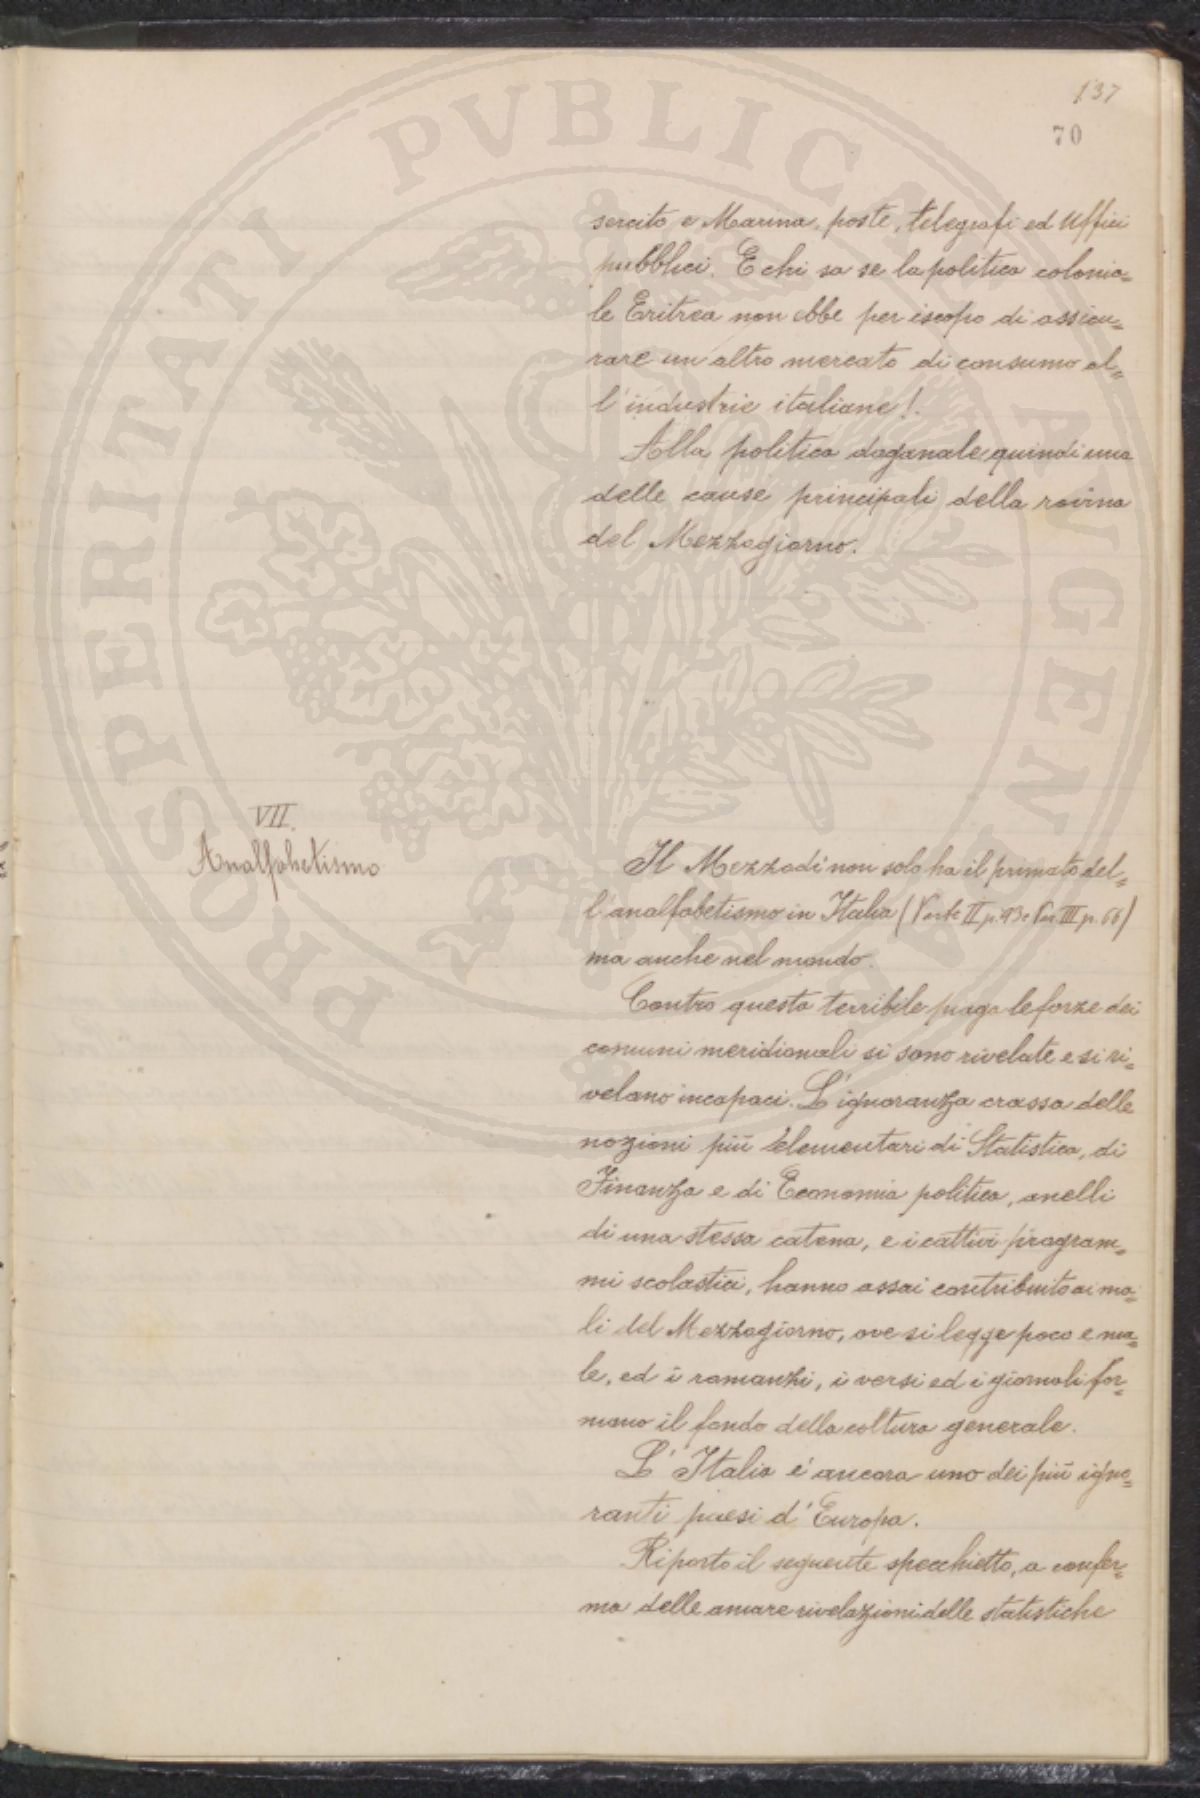 137
70
sercito e Marina, poste, telegrafi ed Uffici
pubblici. E chi sa se la politica colonia=
le Eritrea non ebbe per iscopo di assicu=
rare un altro mercato di consumo al=
l'industrie italiane!.
Alla politica doganale quindi una
delle cause principali della rovina
del Mezzogiorno.
VII.
Analfabetismo
Il Mezzodì non solo ha il primato del=
l'analfabetismo in Italia (Parte II p. 93 e III p. 66)
ma anche nel mondo.
Contro questa terribile piaga le forze dei
comuni meridionali si sono rivelate e si ri=
velano incapaci. L'ignoranza crassa delle
nozioni più elementari di Statistica, di
Finanza e di Economia politica, anelli
di una stessa catena, e i cattivi program=
mi scolastici, hanno assai contribuito ai ma=
li del Mezzogiorno, ove si legge poco e ma=
le, ed i romanzi, i versi ed i giornali for=
mano il fondo della coltura generale.
L'Italia è ancora uno dei più igno=
ranti paesi d'Europa.
Riporto il seguente specchietto, a confer=
ma delle amare rivelazioni delle statistiche
PROSPERITATI PVBLICAE AVGENDAE